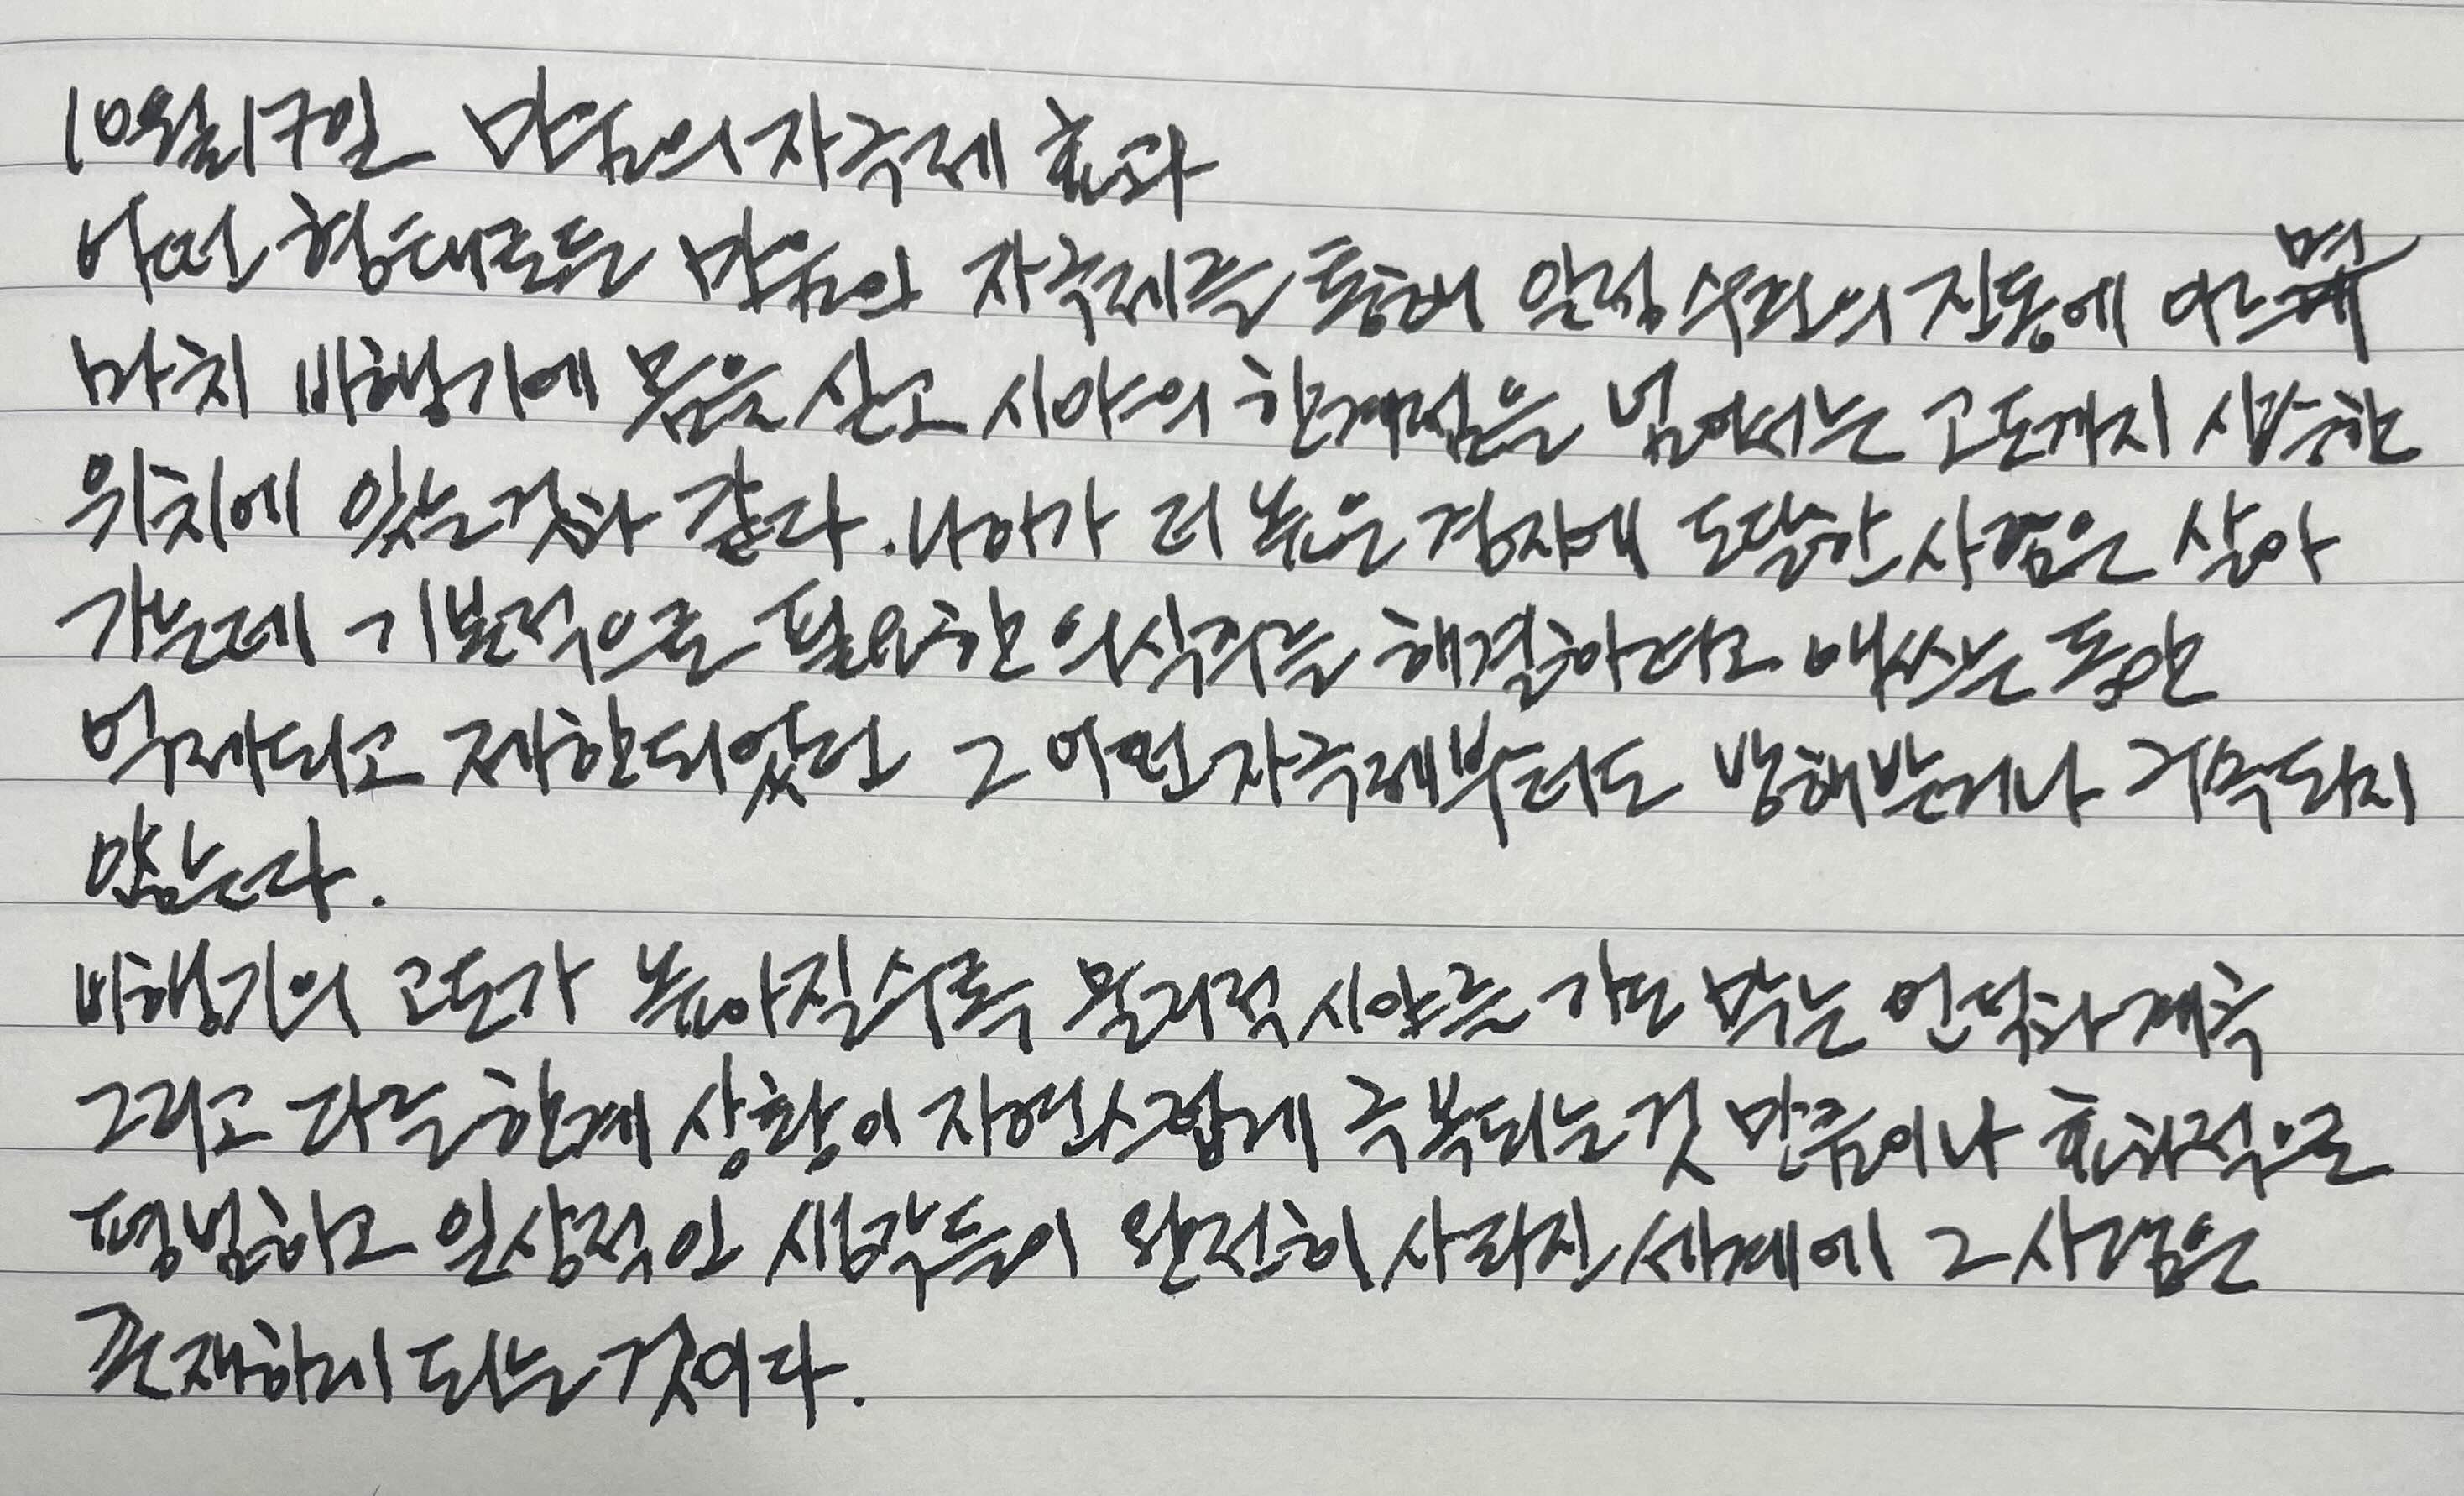 10월17일 마음의 자극제 효과
어떤 형태로든 마음의 자극제를 통해 일정 수준의 진동에 이르면
마치 비행기에 몸을 싣고 시야의 한계점을 넘어서는 고도까지 상승한
위치에 있는것과 같다. 나아가 더 높은 경지에 도달한 사람은 살아
가는데 기본적으로 필요한 의식주를 해결하려고 애쓰는 동안
억제되고 제한되었던 그 어떤 자극제부터도 방해받거나 구속되지
않는다.
비행기의 고도가 높아질수록 물리적 시야를 가로 막는 언덕과 계곡
그리고 다른 한계 상황이 자연스럽게 극복되는것 만큼이나 효과적으로
평범하고 일상적인 생각들이 완전히 사라진 세계에 그 사람은
존재하게 되는 것이다.